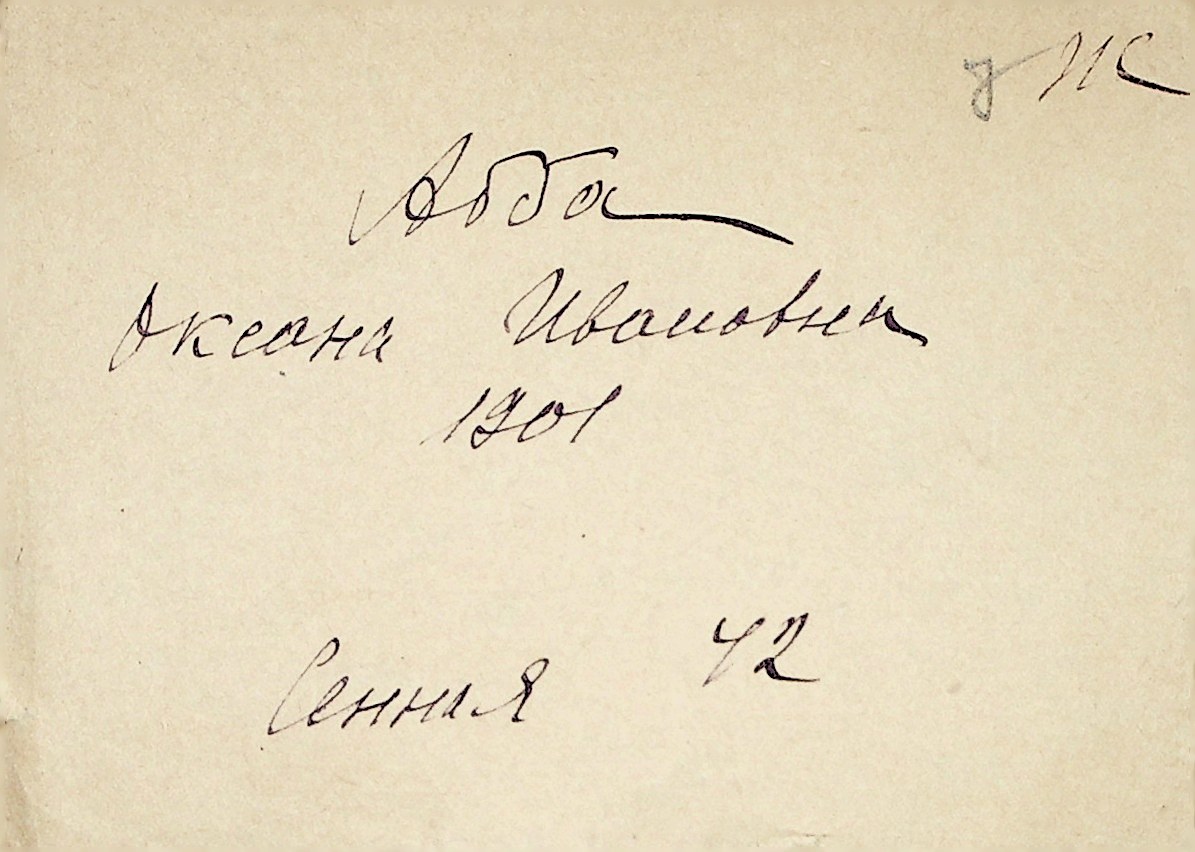 Абба
Оксана Ивановна
1901
Сенная 42